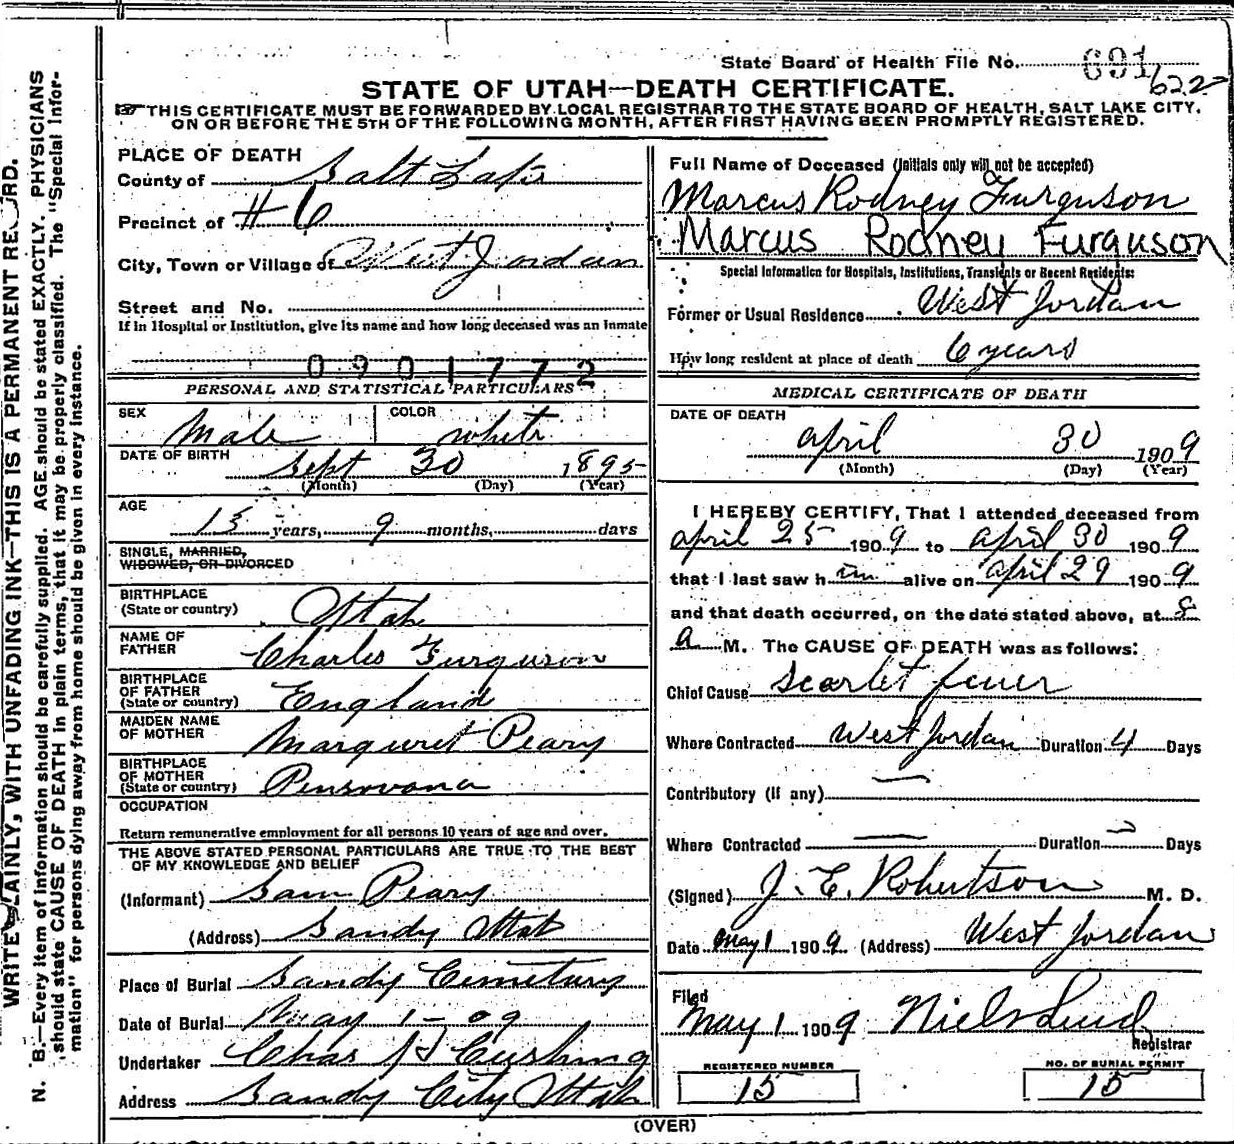 State Board of Health File No. 691 622
STATE OF UTAH—DEATH CERTIFICATE.
THIS CERTIFICATE MUST BE FORWARDED BY LOCAL REGISTRAR TO THE STATE BOARD OF HEALTH, SALT LAKE CITY,
ON OR BEFORE THE 5TH OF THE FOLLOWING MONTH, AFTER FIRST HAVING BEEN PROMPTLY REGISTERED.
PLACE OF DEATH
County of Salt Lake
Precinct of #6
City, Town or Village of West Jordan
Street and No.
If in Hospital or Institution, give its name and how long deceased was an inmate
0901772
PERSONAL AND STATISTICAL PARTICULARS
SEX Male COLOR white
DATE OF BIRTH Sept 30 1895
(Month) (Day) (Year)
AGE
13 years, 9 months, days
SINGLE, MARRIED,
WIDOWED, OR DIVORCED
BIRTHPLACE
(State or country) Utah
NAME OF
FATHER Charles Furguson
BIRTHPLACE
OF FATHER
(State or country) England
MAIDEN NAME
OF MOTHER Marguret Peary
BIRTHPLACE
OF MOTHER
(State or country) Pensovana
OCCUPATION
Return remunerative employment for all persons 10 years of age and over.
THE ABOVE STATED PERSONAL PARTICULARS ARE TRUE TO THE BEST
OF MY KNOWLEDGE AND BELIEF
(Informant) Sam Peary
(Address) Sandy Utah
Place of Burial Sandy Cemetury
Date of Burial May 1-09
Undertaker Chas Cushing
Address Sandy City Utah
Full Name of Deceased (Initials only will not be accepted)
Marcus Rodney Furguson
Marcus Rodney Furguson
Special Information for Hospitals, Institutions, Transients or Recent Residents:
Former or Usual Residence West Jordan
How long resident at place of death 6 years
MEDICAL CERTIFICATE OF DEATH
DATE OF DEATH
april 30 1909
(Month) (Day) (Year)
I HEREBY CERTIFY, That I attended deceased from
april 25 1909 to april 30 1909
that I last saw him alive on april 29 1909
and that death occurred, on the date stated above, at 8
a M. The CAUSE OF DEATH was as follows:
Chief Cause scarlet fever
Where Contracted West Jordan Duration 4 Days
Contributory (if any) —
Where Contracted — Duration Days
(Signed) J. E. Robertson M. D.
Date May 1 1909 (Address) West Jordan
Filed
May 1 1909 Niels Lind
Registrar
REGISTERED NUMBER
15
NO. OF BURIAL PERMIT
15
(OVER)
WRITE PLAINLY, WITH UNFADING INK—THIS IS A PERMANENT RECORD.
N. B.—Every item of information should be carefully supplied. AGE should be stated EXACTLY. PHYSICIANS
should state CAUSE OF DEATH in plain terms, that it may be properly classified. The "Special Infor-
mation" for persons dying away from home should be given in every instance.